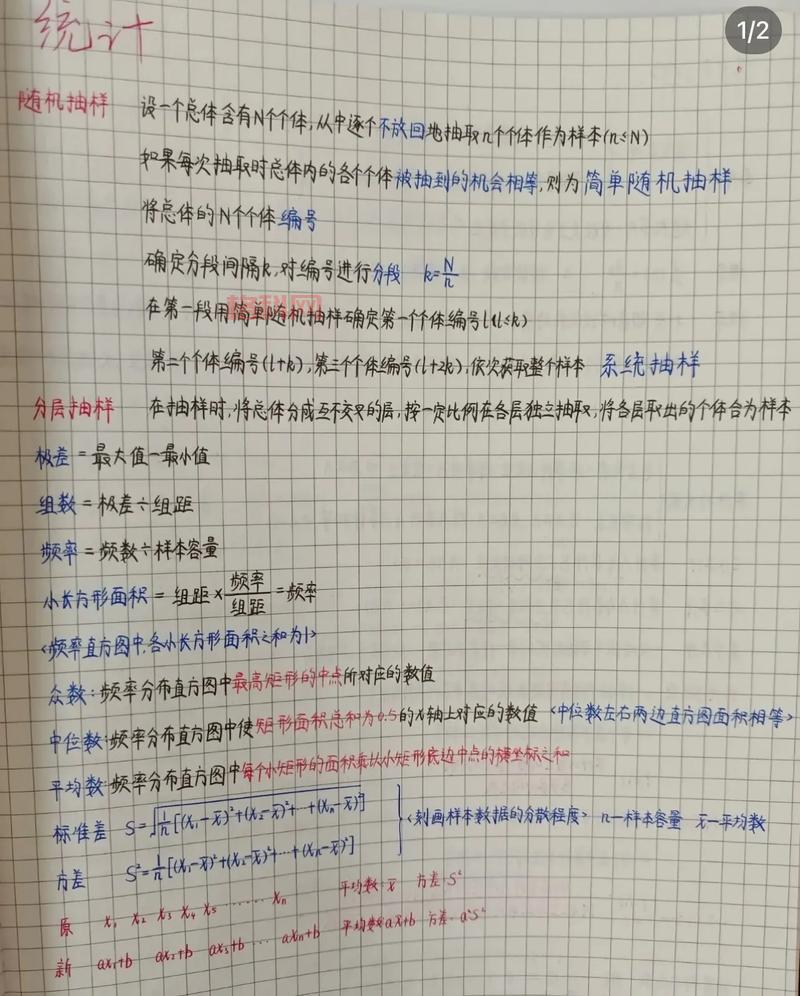 1/2
统计
随机抽样 设一个总体含有N个个体,从中逐个不放回地抽取n个个体作为样本(n≤N)
如果每次抽取时总体内的各个个体被抽到的机会相等,则为简单随机抽样
将总体的N个个体编号
确定分段间隔k,对编号进行分段 k=N/n
在第一段用简单随机抽样确定第一个个体编号l(l≤k)
第二个个体编号(l+k),第三个个体编号(l+2k),依次获取整个样本 系统抽样
分层抽样 在抽样时,将总体分成互不交叉的层,按一定比例在各层独立抽取,将各层取出的个体合为样本
极差=最大值-最小值
组数=极差÷组距
频率=频数÷样本容量
小长方形面积=组距×频率/组距=频率
<频率直方图中,各小长方形面积之和为1>
众数:频率分布直方图中最高矩形的中点所对应的数值
中位数:频率分布直方图中使矩形面积总和为0.5的x轴上对应的数值 <中位数左右两边直方图面积相等>
平均数:频率分布直方图中每个小矩形的面积乘以小矩形底边中点的横坐标之和
标准差 S=√1/n[(x₁-x̄)²+(x₂-x̄)²+…+(xₙ-x̄)²]
<刻画样本数据的分散程度> n—样本容量 x̄—平均数
方差 S²=1/n[(x₁-x̄)²+(x₂-x̄)²+…+(xₙ-x̄)²]
原 x₁ x₂ x₃ x₄ x₅ …… xₙ 平均数:x̄ 方差:S²
新 ax₁+b ax₂+b ax₃+b … axₙ+b 平均数:ax̄+b 方差:a²S²